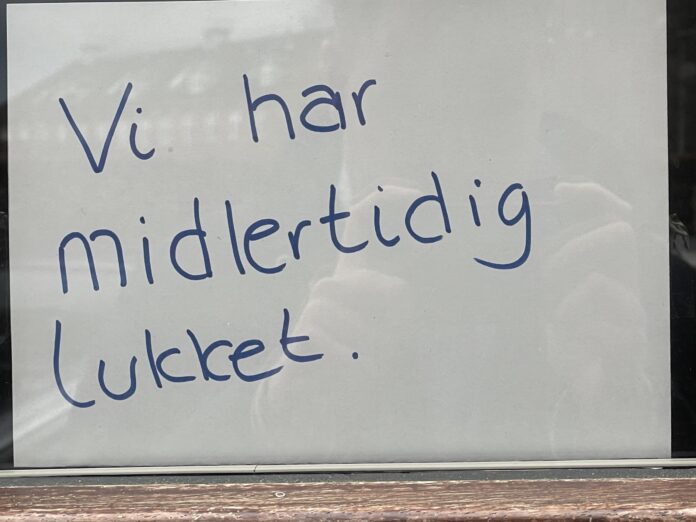 Vi har
midlertidig
lukket.